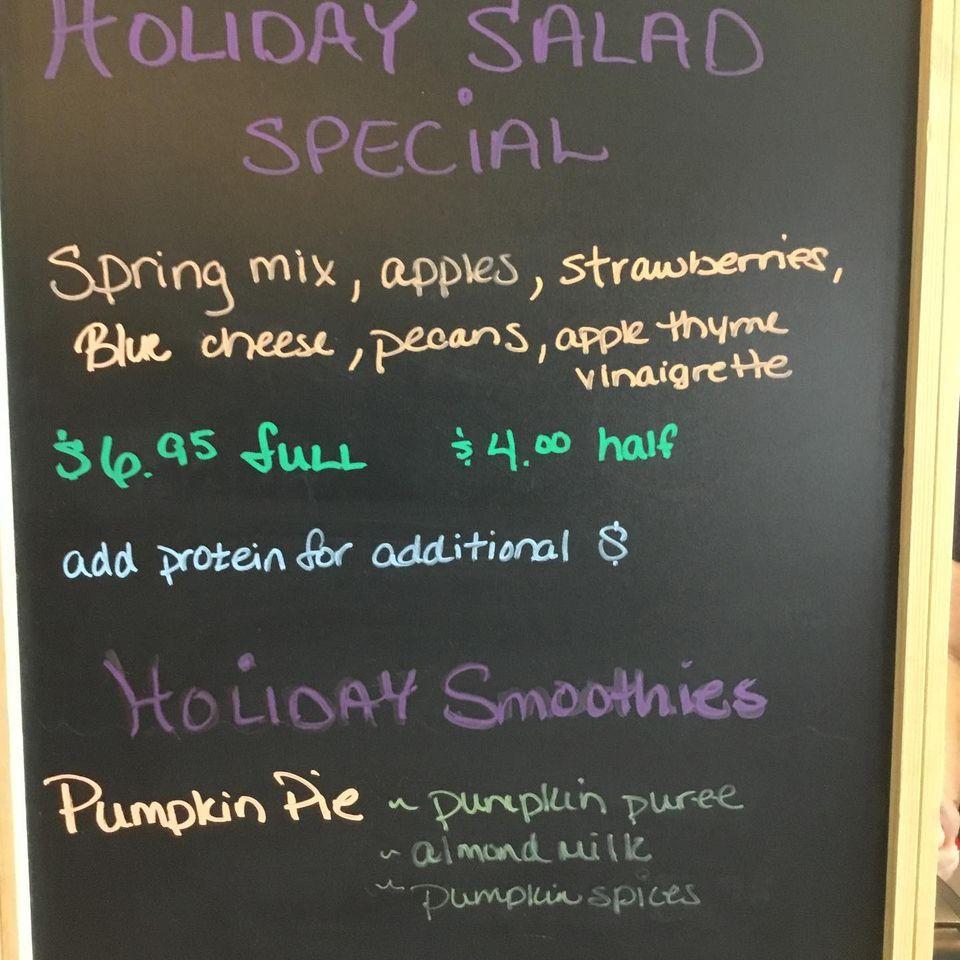 HOLIDAY SALAD
SPECIAL
Spring mix, apples, strawberries,
Blue cheese, pecans, apple thyme
vinaigrette
$6.95 full $4.00 half
add protein for additional $
HOLIDAY Smoothies
Pumpkin Pie ~ pumpkin puree
~ almond milk
~ pumpkin spices